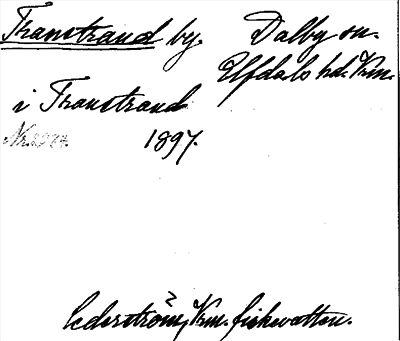 Transtrand by. Dalby sn.
Elfdals hd. Vrm.
i Transtrand
1897.
Cederström, Vrm. fiskevatten.